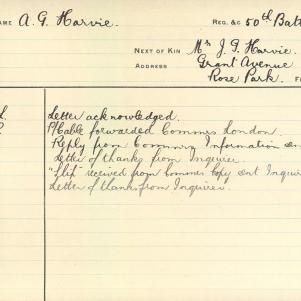 NAME A. G. Harvie. REG. &c 50th Batt
NEXT OF KIN Mr J. G. Harvie.
ADDRESS Grant Avenue
Rose Park.
Letter acknowledged.
P/Cable forwarded Commrs London.
Reply from Information
Letter of thanks from Inquirer.
"Slip" received from Commrs Copy sent Inquir
Letter of thanks from Inquirer.